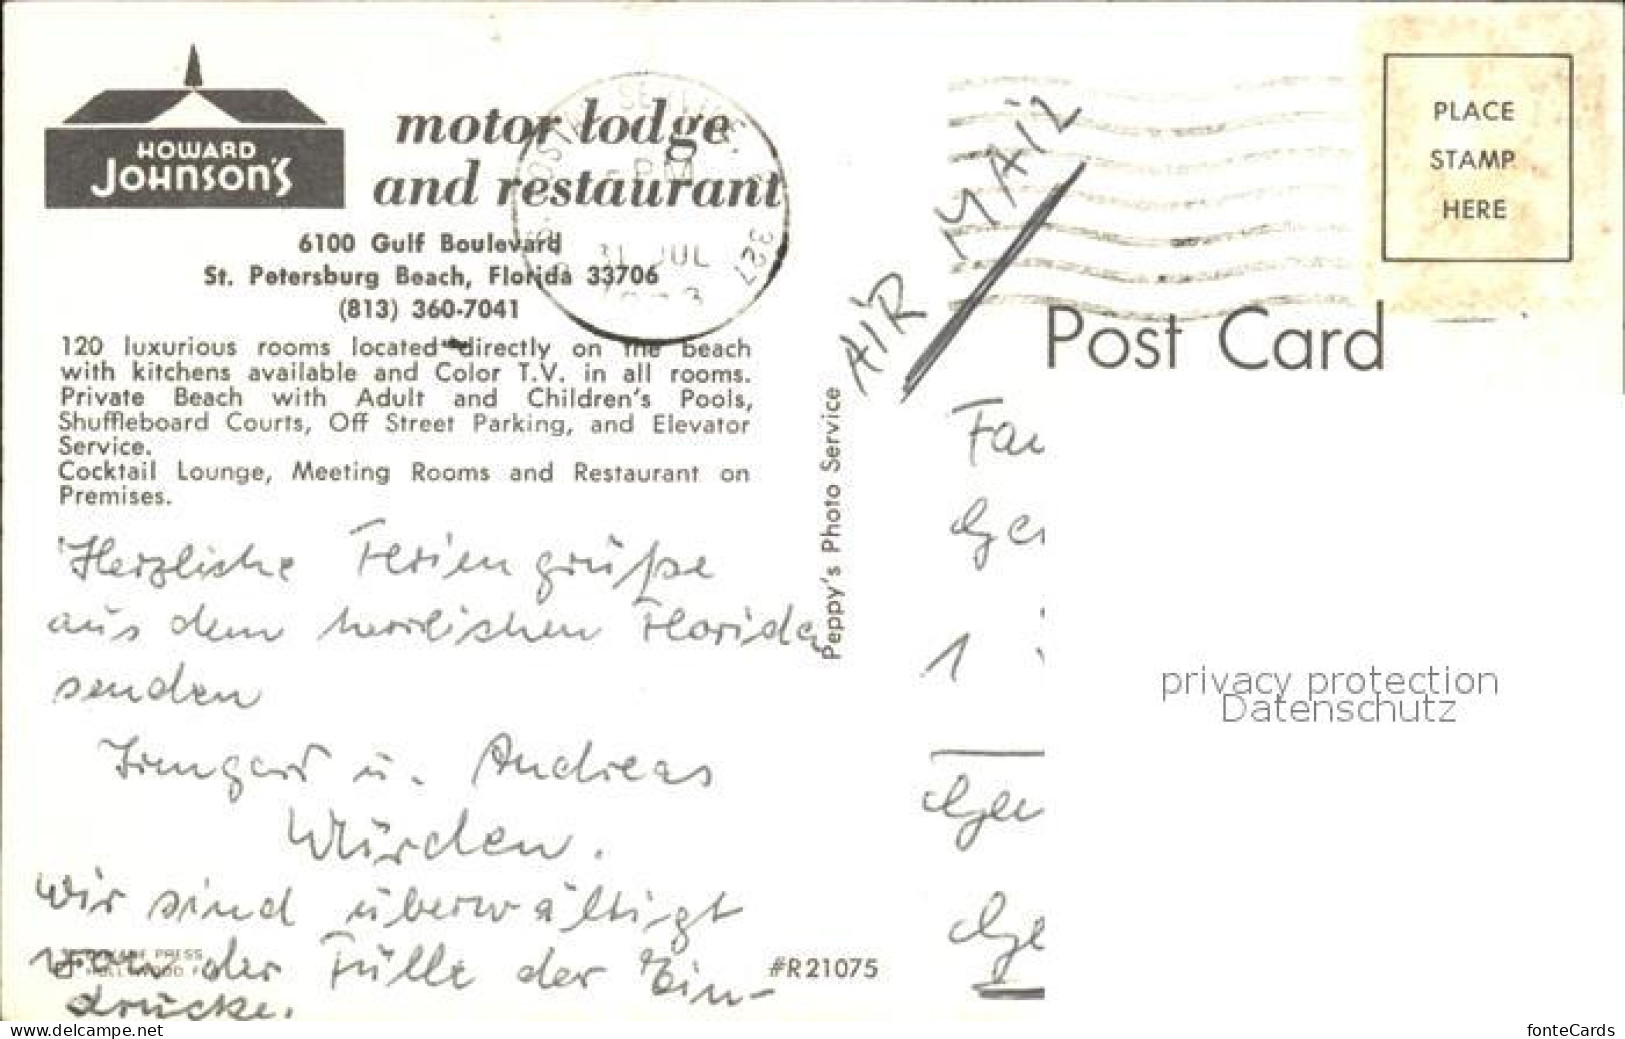 HOWARD
JOHNSON'S
motor lodge
and restaurant
6100 Gulf Boulevard
St. Petersburg Beach, Florida 33706
(813) 360-7041
120 luxurious rooms located directly on the beach
with kitchens available and Color T.V. in all rooms.
Private Beach with Adult and Children's Pools,
Shuffleboard Courts, Off Street Parking, and Elevator
Service.
Cocktail Lounge, Meeting Rooms and Restaurant on
Premises.
Herzliche Feriengrüße
aus dem herrlichen Florida
senden
Irmgard u. Andreas
Würden.
Wir sind überwältigt
von der Fülle der Ein-
drücke.
#R21075
Peppy's Photo Service
PM
31 JUL
327
AIR MAIL
PLACE
STAMP
HERE
Post Card
1
privacy protection
Datenschutz
www.delcampe.net
fonteCards